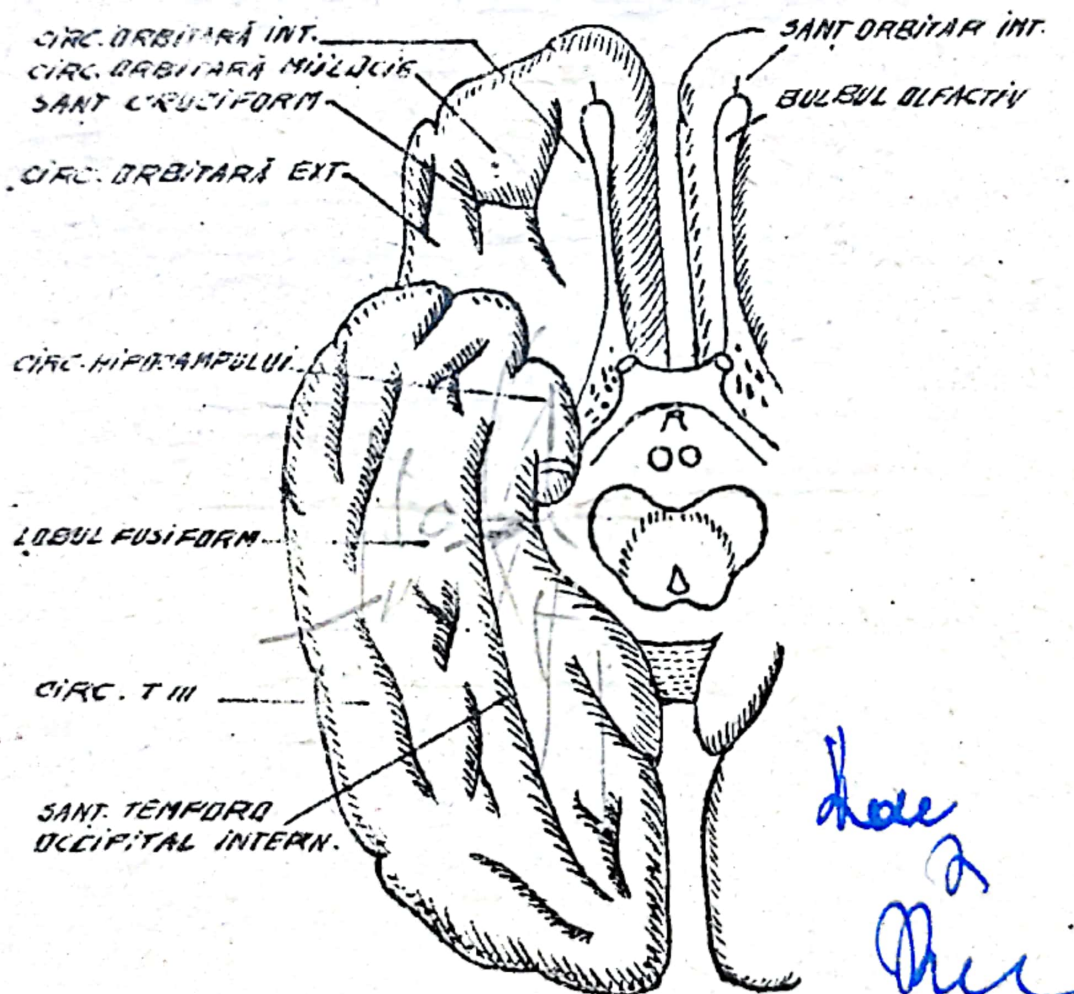 CIRC. ORBITARĂ INT.
CIRC. ORBITARĂ MIJLOCIE
SANT CRUCIFORM
CIRC. ORBITARĂ EXT.
CIRC. HIPOCAMPULUI
LOBUL FUSIFORM
CIRC. T III
SANT. TEMPORO
OCCIPITAL INTERN.
SANT ORBITAR INT.
BULBUL OLFACTIV